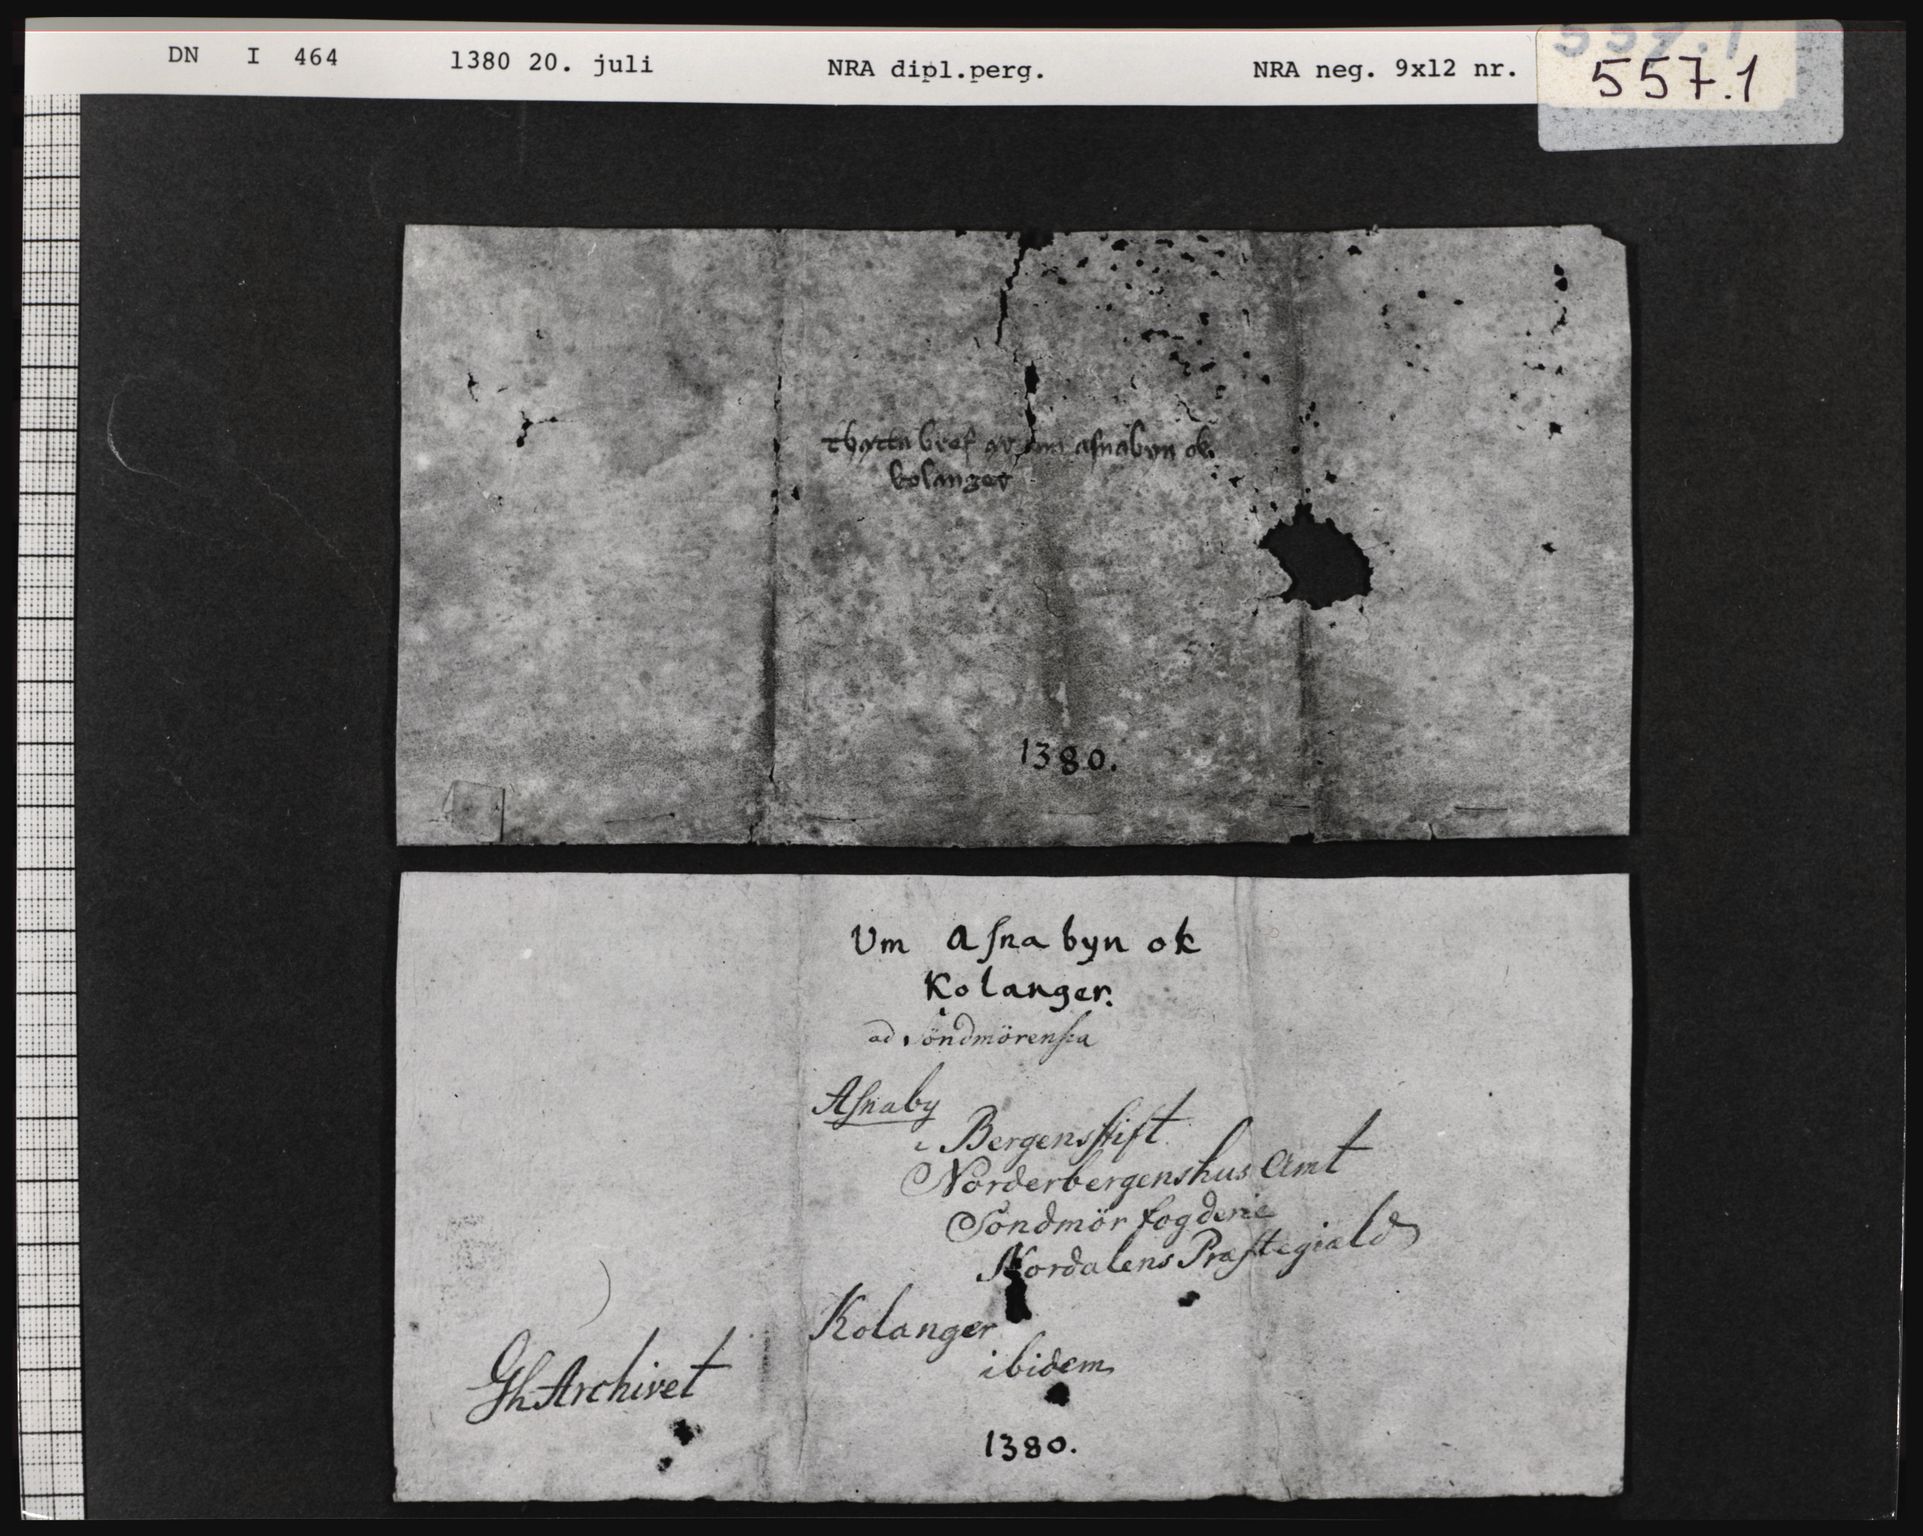 DN I 464 1380 20. juli NRA dipl.perg. NRA neg. 9x12 nr. 557.1
thætta bref ær um asnabyn ok
kolanger
1380.
Um Asna byn ok
Kolanger.
ad Söndmörensia
Asnaby
i Bergensstift
Norderbergenshus Amt
Söndmör fogderie
Nordalens Præstegiald
Kolanger
ibidem
Gh Archivet
1380.